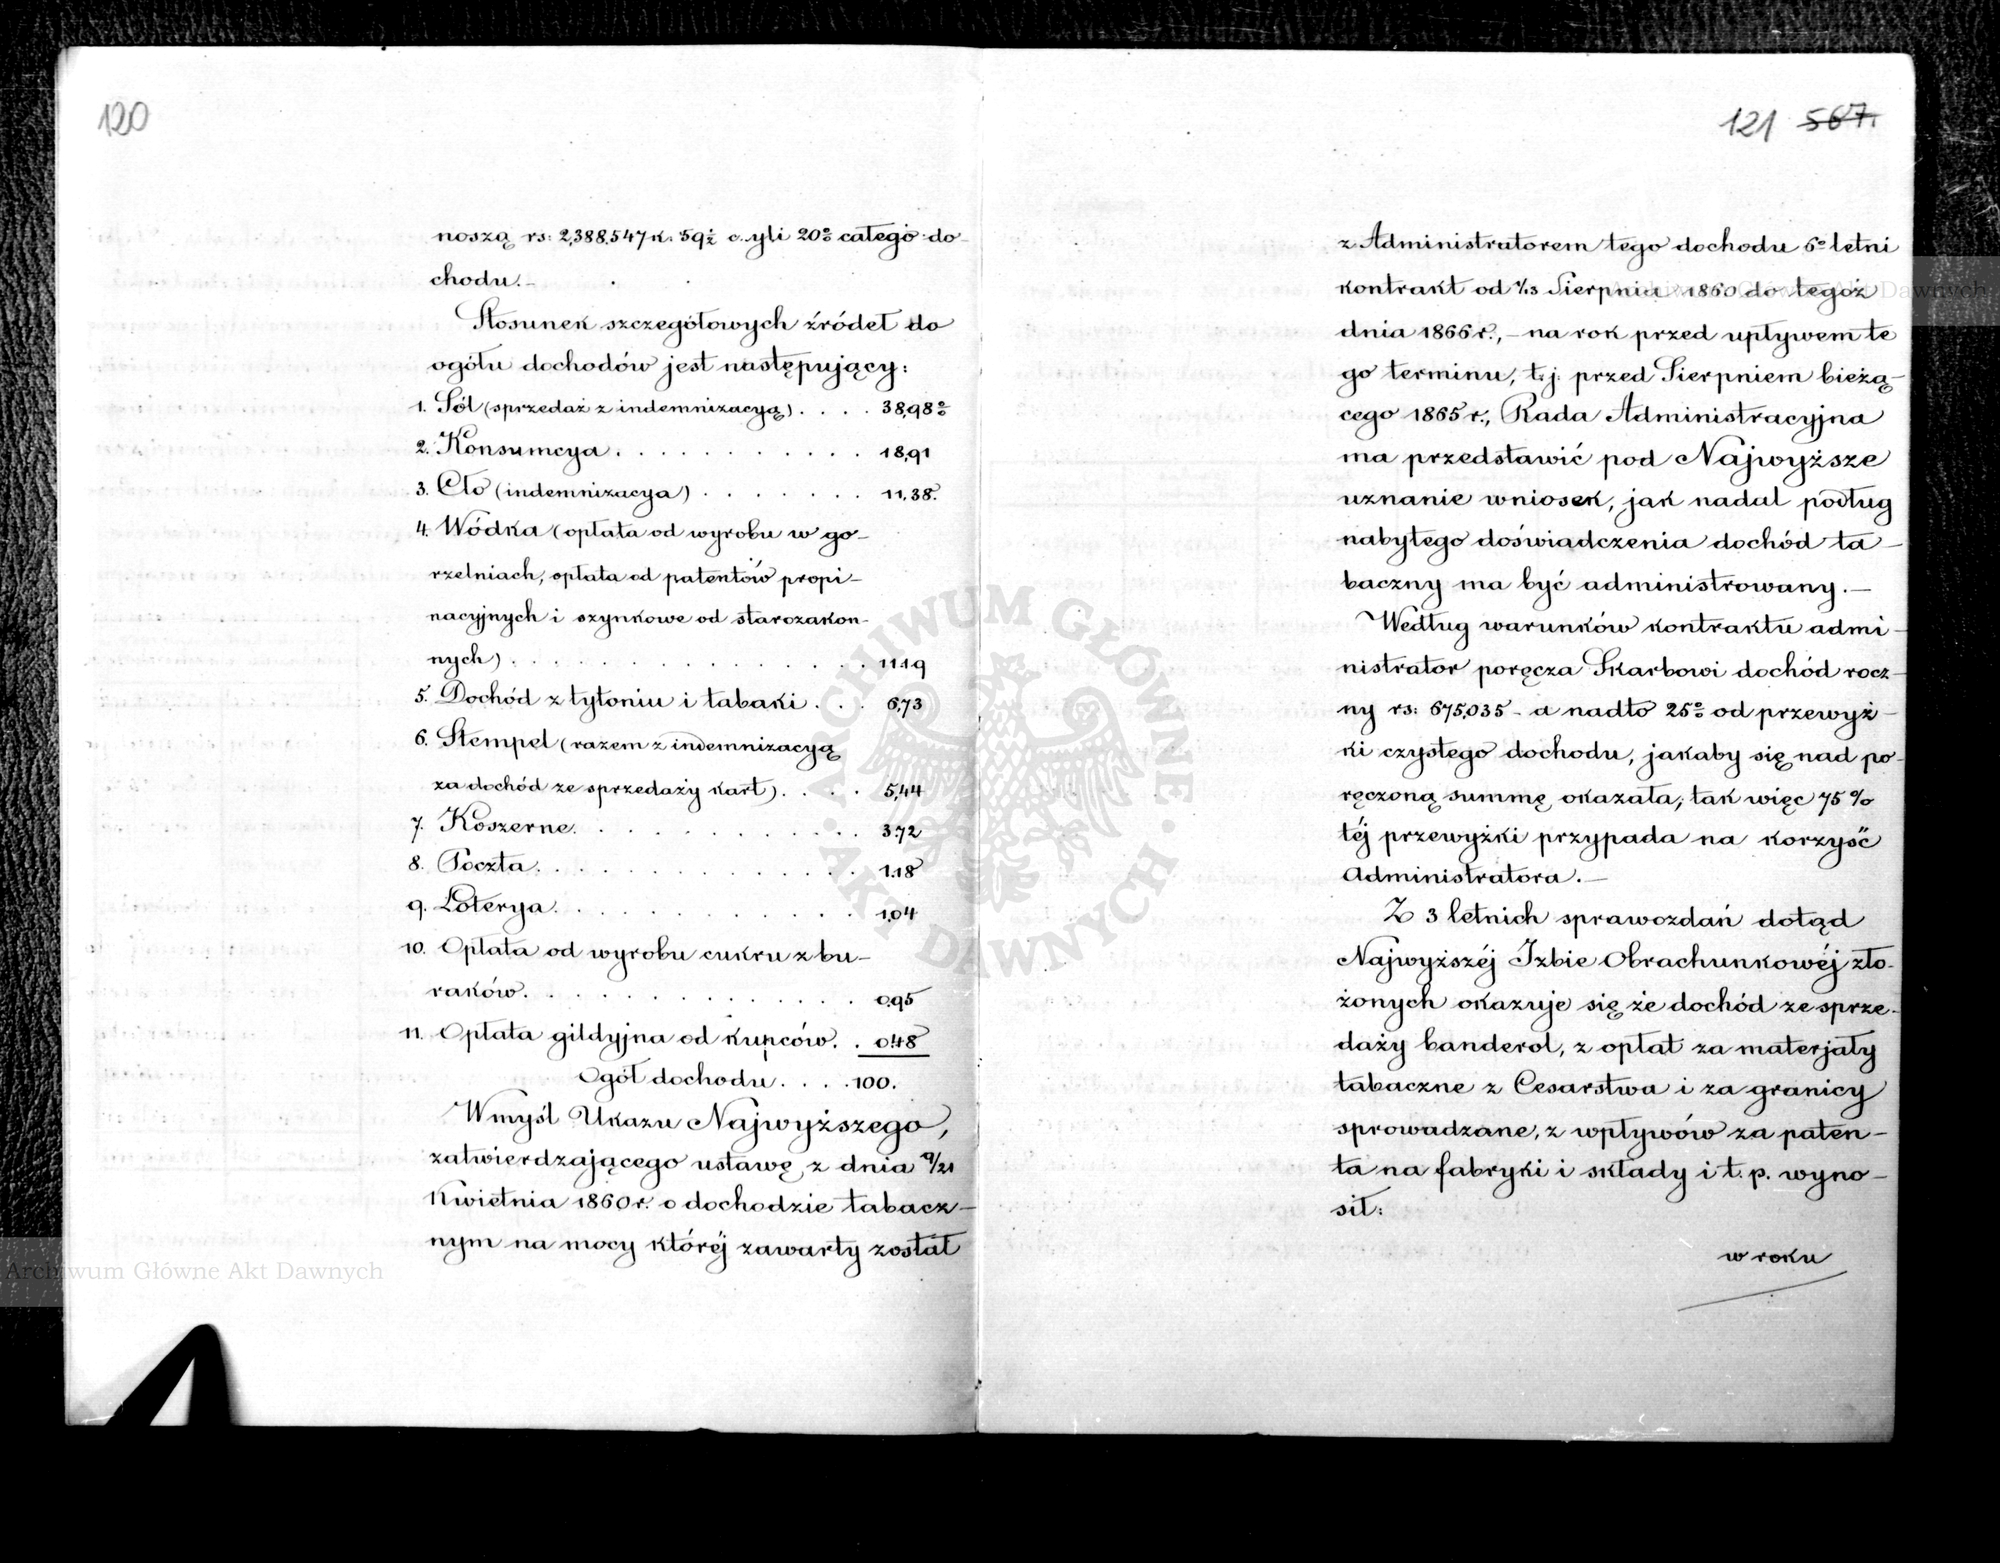 120
noszą rs: 2,388,547 k. 59½ czyli 20% całego do-
chodu.-
Stosunek szczegółowych źródeł do
ogółu dochodów jest następujący:
1. Sól (sprzedaż z indemnizacyą) . . . . 38,98%
2. Konsumcya . . . . . . . . . . 18,91
3. Cło (indemnizacya) . . . . . . . 11,38.
4. Wódka (opłata od wyrobu w go-
rzelniach, opłata od patentów propi-
nacyjnych i szynkowe od starozakon-
nych) . . . . . . . . . . . . . . 11.19
5. Dochód z tytoniu i tabaki . . . 6,73
6. Stempel (razem z indemnizacyą
za dochód ze sprzedaży kart) . . . . 5,44
7. Koszerne . . . . . . . . . . . 3.72
8. Poczta . . . . . . . . . . . . . 1.18
9. Loterya . . . . . . . . . . . . 1,04
10. Opłata od wyrobu cukru z bu-
raków . . . . . . . . . . . . . . 0.95
11. Opłata gildyjna od kupców . . 0.48
Ogół dochodu . . . . 100.
W myśl Ukazu Najwyższego,
zatwierdzającego ustawę z dnia 9/21
Kwietnia 1860 r. o dochodzie tabacz-
nym na mocy któréj zawarty został
Archiwum Główne Akt Dawnych
121 567.
z Administratorem tego dochodu 6o letni
kontrakt od 1/13 Sierpnia 1860 do tegoż
Archiwum Główne Akt Dawnych
dnia 1866 r., - na rok przed upływem te
go terminu, t.j. przed Sierpniem bieżą-
cego 1865 r., Rada Administracyjna
ma przedstawić pod Najwyższe
uznanie wniosek, jak nadal podług
nabytego doświadczenia dochód ta-
baczny ma być administrowany.-
Według warunków kontraktu admi-
nistrator poręcza Skarbowi dochód rocz-
ny rs: 675,035 - a nadto 25% od przewyż-
ki czystego dochodu, jakaby się nad po-
ręczoną summę okazała; tak więc 75%
téj przewyżki przypada na korzyść
Administratora.-
Z 3 letnich sprawozdań dotąd
Najwyższéj Izbie Obrachunkowéj zło-
żonych okazuje się że dochód ze sprze-
daży banderol, z opłat za materjały
tabaczne z Cesarstwa i za granicy
sprowadzane, z wpływów za paten-
ta na fabryki i składy i t. p. wyno-
sił:
w roku
ARCHIWUM GŁÓWNE
AKT DAWNYCH